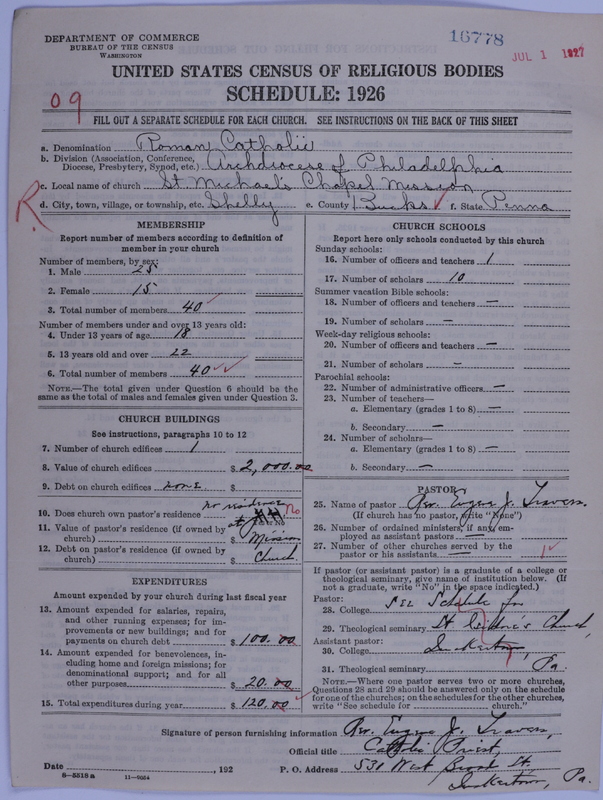 DEPARTMENT OF COMMERCE
BUREAU OF THE CENSUS
WASHINGTON
16778
JUL 1 1927
UNITED STATES CENSUS OF RELIGIOUS BODIES
SCHEDULE: 1926
09
FILL OUT A SEPARATE SCHEDULE FOR EACH CHURCH. SEE INSTRUCTIONS ON THE BACK OF THIS SHEET
a. Denomination Roman Catholic
b. Division (Association, Conference, Diocese, Presbytery, Synod, etc.) Archdiocese of Philadelphia
c. Local name of church St Michael's Chapel Mission
R
d. City, town, village, or township, etc. Shelly e. County Bucks ✓ f. State Penna
MEMBERSHIP
Report number of members according to definition of
member in your church
Number of members, by sex:
1. Male 25
2. Female 15
3. Total number of members 40 ✓
Number of members under and over 13 years old:
4. Under 13 years of age 18
5. 13 years old and over 22
6. Total number of members 40 ✓ ✓
NOTE.—The total given under Question 6 should be the
same as the total of males and females given under Question 3.
CHURCH BUILDINGS
See instructions, paragraphs 10 to 12
7. Number of church edifices 1
8. Value of church edifices $ 2,000.00
9. Debt on church edifices none $
no residence
10. Does church own pastor's residence? at No
Yes or No
11. Value of pastor's residence (if owned by
church) $ Mission
12. Debt on pastor's residence (if owned by
church) $ Church
EXPENDITURES
Amount expended by your church during last fiscal year
13. Amount expended for salaries, repairs,
and other running expenses; for im-
provements or new buildings; and for
payments on church debt $ 100.00
14. Amount expended for benevolences, in-
cluding home and foreign missions; for
denominational support; and for all
other purposes $ 20.00
15. Total expenditures during year $ 120.00 ✓
CHURCH SCHOOLS
Report here only schools conducted by this church
Sunday schools:
16. Number of officers and teachers 1
17. Number of scholars 10
Summer vacation Bible schools:
18. Number of officers and teachers —
19. Number of scholars —
Week-day religious schools:
20. Number of officers and teachers —
21. Number of scholars —
Parochial schools:
22. Number of administrative officers —
23. Number of teachers—
a. Elementary (grades 1 to 8) —
b. Secondary —
24. Number of scholars—
a. Elementary (grades 1 to 8) —
b. Secondary —
PASTOR
25. Name of pastor Rev. Eugene J. Travers
(If church has no pastor, write "None")
26. Number of ordained ministers, if any, em-
ployed as assistant pastors —
27. Number of other churches served by the
pastor or his assistants — 1 ✓
If pastor (or assistant pastor) is a graduate of a college or
theological seminary, give name of institution below. (If
not a graduate, write "No" in the space indicated.)
Pastor:
28. College See Schedule for
29. Theological seminary St Isidore's Church
Assistant pastor:
30. College Quakertown,
31. Theological seminary Pa.
NOTE.—Where one pastor serves two or more churches,
Questions 28 and 29 should be answered only on the schedule
for one of the churches; on the schedules for the other churches,
write "See schedule for church."
Signature of person furnishing information Rev. Eugene J. Travers,
Official title Catholic Priest,
Date , 192 P. O. Address 531 West Broad St.
Quakertown, Pa.
8-5518 a 11-9054